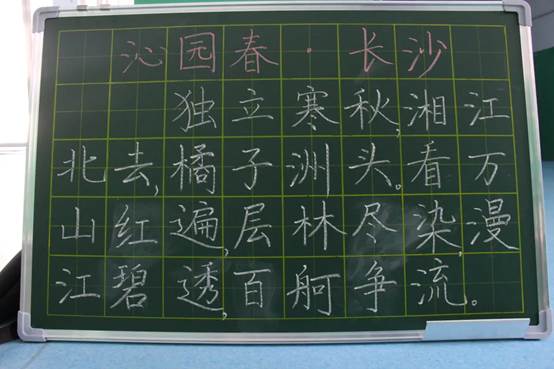 沁园春·长沙
独立寒秋,湘江
北去,橘子洲头。看万
山红遍,层林尽染,漫
江碧透,百舸争流。